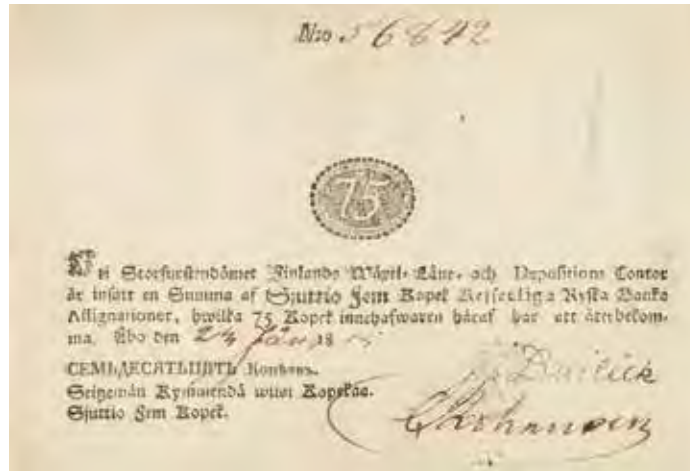 N:ro 56842
75
Uti Storfurstendömet Finlands Wäxel- Låne- och Depositions Contor
är insatt en Summa af Sjuttio Fem Kopek Kejserliga Ryska Banko
Assignationer, hwilka 75 Kopek innehafwaren häraf har att återbekom-
ma. Åbo den 24 Jan. 18
СЕМЬДЕСЯТЪПЯТЬ Копѣекъ.
Seitzemän Kymmendä wiisi Kopekaa.
Sjuttio Fem Kopek.